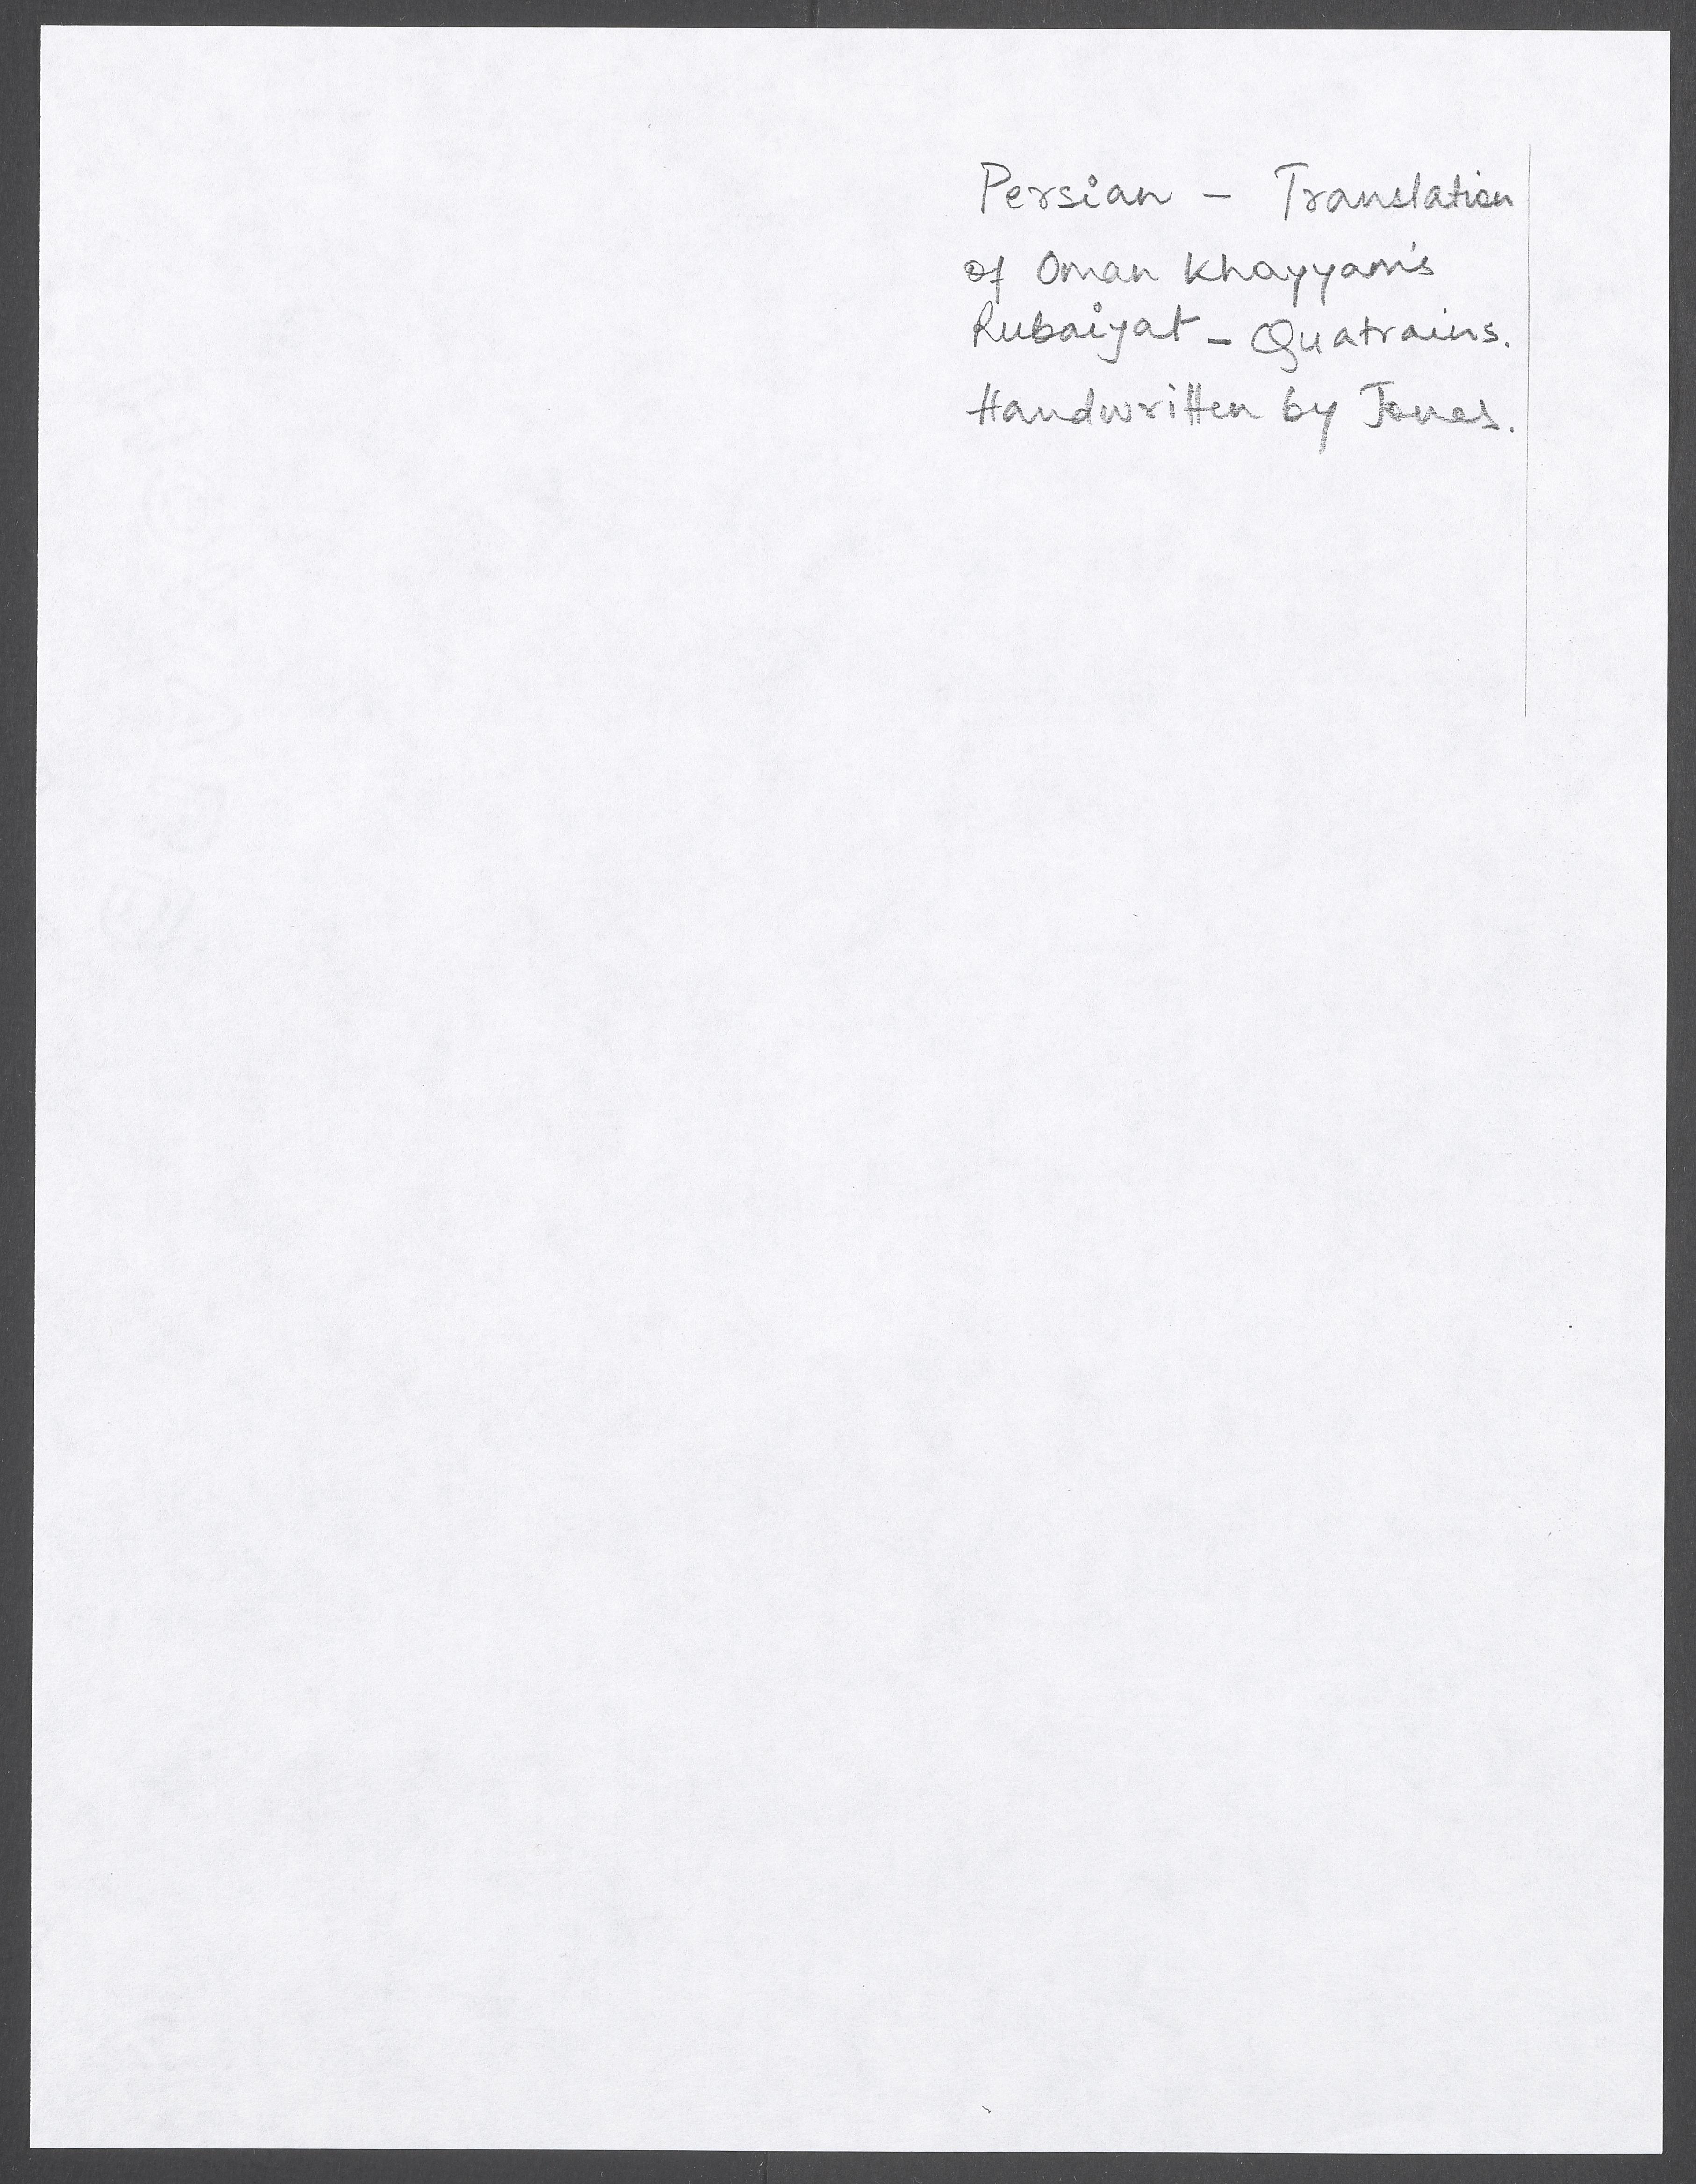 Persian – Translation
of Oman Khayyam's
Rubaiyat – Quatrains.
Handwritten by Jones.